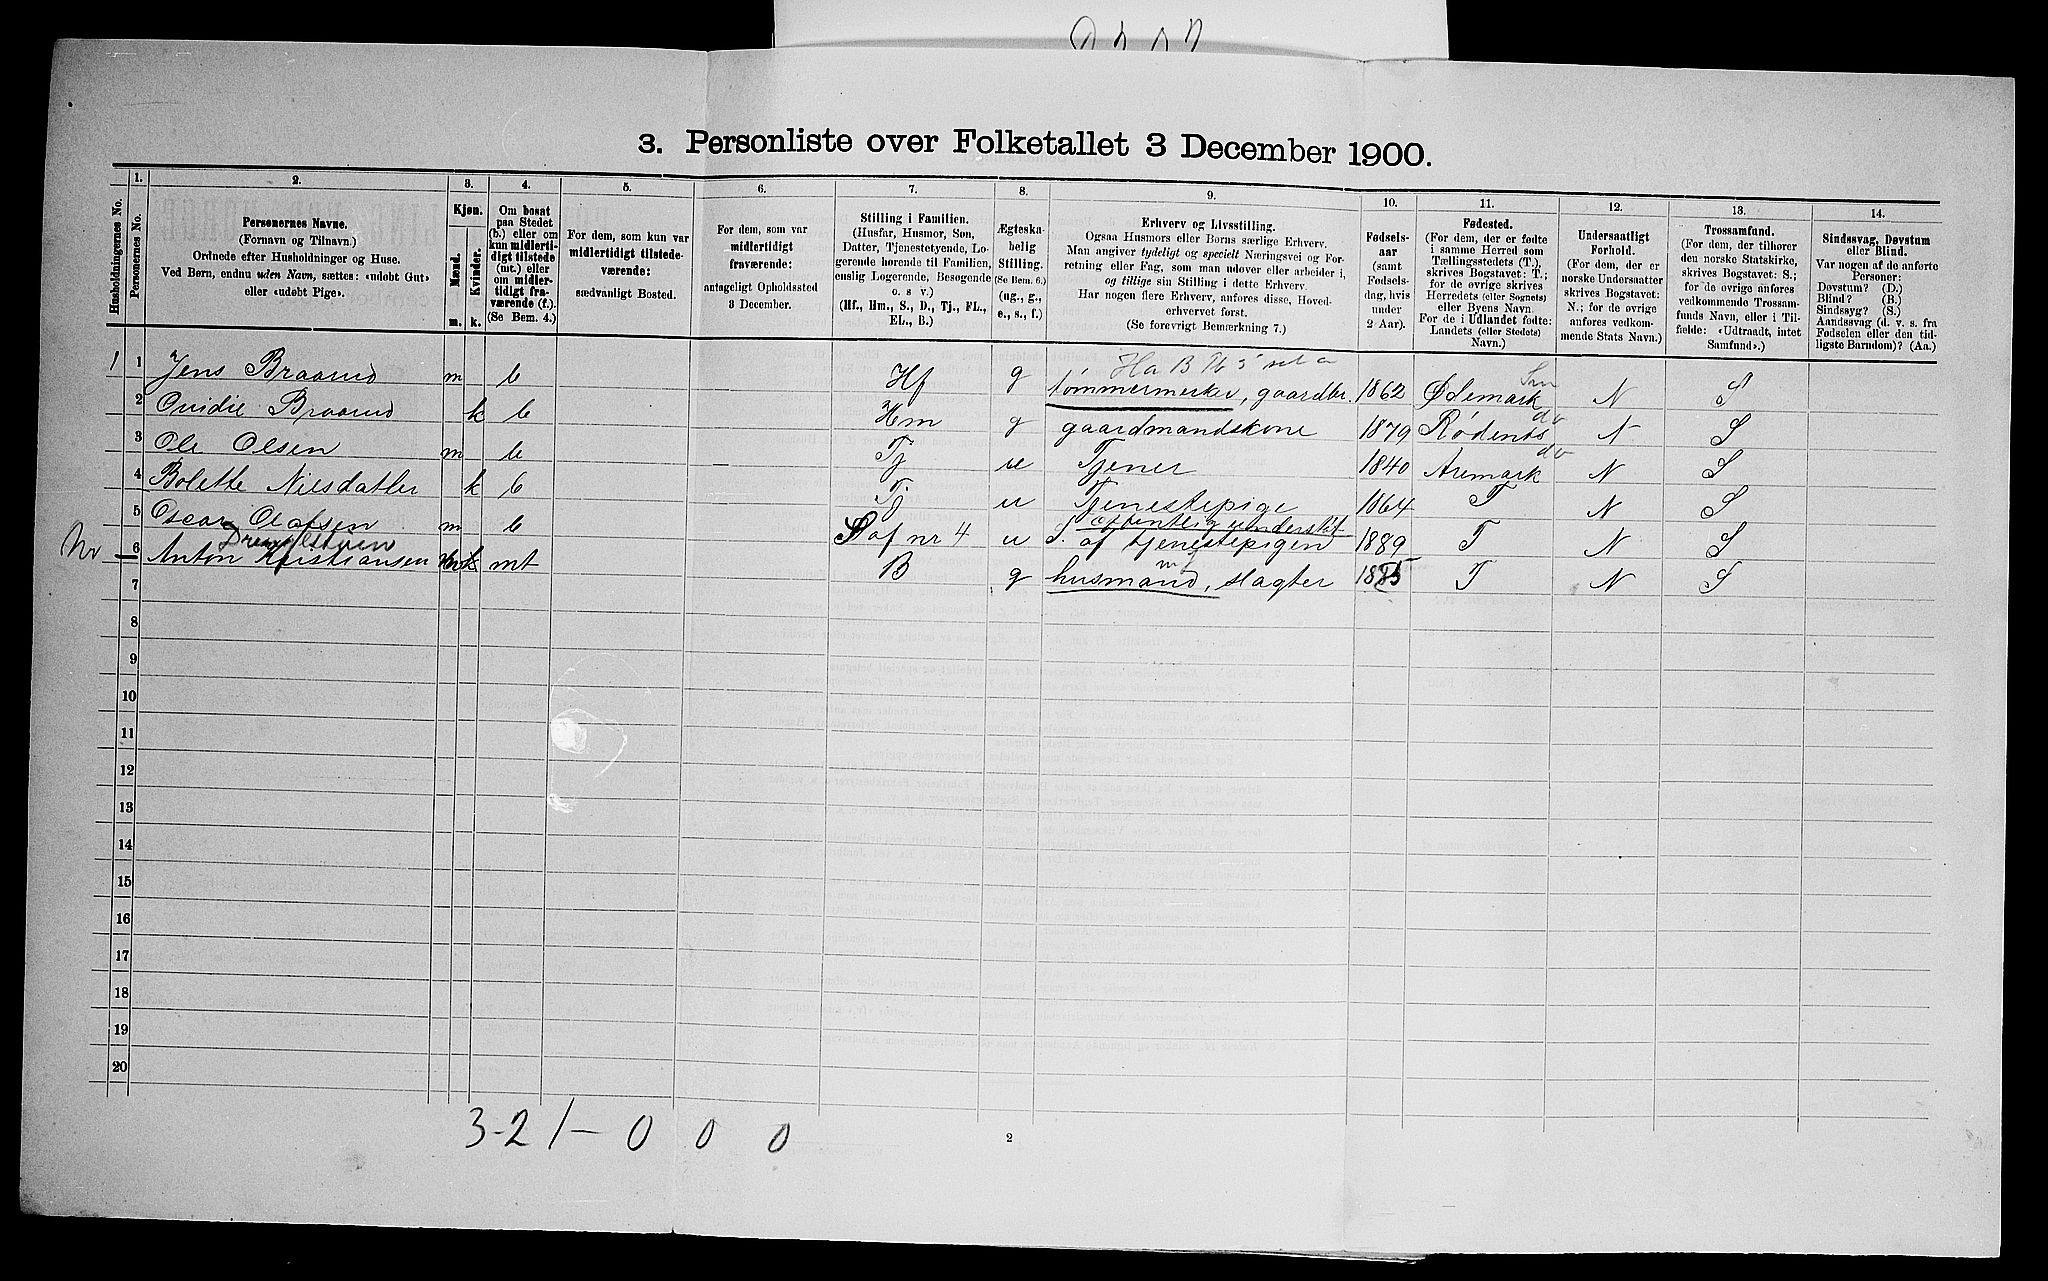 3. Personliste over Folketallet 3 December 1900.
Husholdningernes No.
1.
Personernes No.
2.
Personernes Navne.
(Fornavn og Tilnavn.)
Ordnede efter Husholdninger og Huse.
Ved Børn, endnu uden Navn, sættes: «udøbt Gut»
eller «udøbt Pige».
3.
Kjøn.
Mænd.
Kvinder.
m. k.
4.
Om bosat
paa Stedet
(b.) eller om
kun midlerti-
digt tilstede
(mt.) eller
om midler-
tidigt fra-
værende (f.).
(Se Bem. 4.)
5.
For dem, som kun var
midlertidigt tilstede-
værende:
sædvanligt Bosted.
6.
For dem, som var
midlertidigt
fraværende:
antageligt Opholdssted
3 December.
7.
Stilling i Familien.
(Husfar, Husmor, Søn,
Datter, Tjenestetyende, Lo-
gerende hørende til Familien,
enslig Logerende, Besøgende
o. s v.)
(Hf., Hm., S., D., Tj., FL.,
EL., B.)
8.
Ægteska-
belig
Stilling.
(Se Bem. 6.)
(ug., g.,
e., s., f.)
9.
Erhverv og Livsstilling.
Ogsaa Husmors eller Børns særlige Erhverv.
Man angiver tydeligt og specielt Næringsvei og For-
retning eller Fag, som man udøver eller arbeider i,
og tillige sin Stilling i dette Erhverv.
Har nogen flere Erhverv, anføres disse, Hoved-
erhvervet først.
(Se forøvrigt Bemærkning 7.)
10.
Fødsels-
aar
(samt
Fødsels-
dag, hvis
under
2 Aar).
11.
Fødested.
(For dem, der er fødte
i samme Herred som
Tællingsstedets (T.),
skrives Bogstavet: T.;
for de øvrige skrives
Herredets (eller Sognets)
eller Byens Navn.
For de i Udlandet fødte:
Landets (eller Stedets)
Navn.)
12.
Undersaatligt
Forhold.
(For dem, der er
norske Undersaatter
skrives Bogstavet:
N.; for de øvrige
anføres vedkom-
mende Stats Navn.)
13.
Trossamfund.
(For dem, der tilhører
den norske Statskirke,
skrives Bogstavet: S.;
for de øvrige anføres
vedkommende Trossam-
funds Navn, eller i Til-
fælde: «Udtraadt, intet
Samfund».)
14.
Sindssvag, Døvstum
eller Blind.
Var nogen af de anførte
Personer:
Døvstum? (D.)
Blind? (B.)
Sindssyg? (S.)
Aandssvag (d. v. s. fra
Fødselen eller den tid-
ligste Barndom)? (Aa.)
1 1 Jens Braarud m b Hf g tømmermerker, gaardbr. 1862 Ødemark N S
2 Ovidie Braarud k b Hm g gaardmandskone 1879 Rødenes do N S
3 Ole Olsen m b Tj u Tjener 1840 Aremark do N S
4 Bolette Nilsdatter k b Tj u Tjenestepige 1864 T N S
offentlig understøt
5 Oscar Olafsen m b S af nr 4 u S. af tjenestepigen 1889 T N S
Nr 6 Anton Kristiansen mt B g husmand, slagter 1885 T N S
7
8
9
10
11
12
13
14
15
16
17
18
19
20
3-2 1- 0 0 0
2